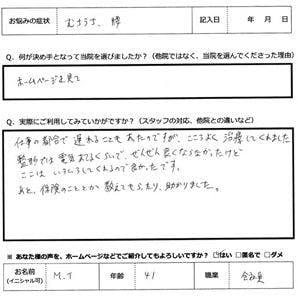 お悩みの症状 むちうち、腰 記入日 年 月 日
Q. 何が決め手となって当院を選びましたか？（他院ではなく、当院を選んでくださった理由）
ホームページを見て
Q. 実際にご利用してみていかがですか？（スタッフの対応、他院との違いなど）
仕事の都合で遅れることもあったのですが、こころよく治療してくれました
整形では電気あてるくらいで、ぜんぜん良くならなかったけど
ここはいろいろしてくれるので良かったです。
あと、保険のこととか教えてもらったり、助かりました。
※ あなた様の声を、ホームページなどでご紹介してもよろしいですか？ はい □匿名で □ダメ
お名前 (イニシャル可) M.T 年齢 41 職業 会社員